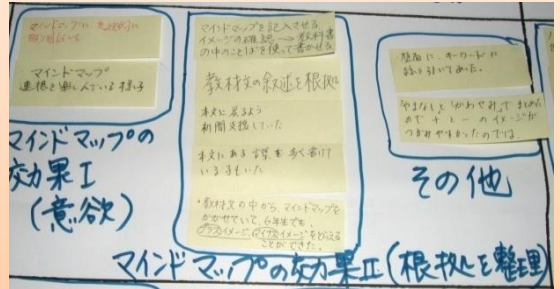 マインドマップに意欲的に
取り組んでいる
マインドマップ
連想を楽しんでいる様子
マインドマップの
効果Ⅰ
(意欲)
マインドマップを記入させる
イメージの確認→教科書
の中のことばを使って書かせる
教材文の叙述を根拠に
本文に戻るよう
机間支援していた
本文にある言葉を多く書けて
いる子もいた
・教材文の中から、マインドマップを
かかせていて、6年生でも、
プラスイメージ、マイナスイメージをとらえる
ことができた。
マインドマップの効果Ⅱ(根拠を整理)
に、キーワードに
線を引いてあった。
やまなしとかわせみ
+と-のイメージが
つかみやすかったのでは
その他